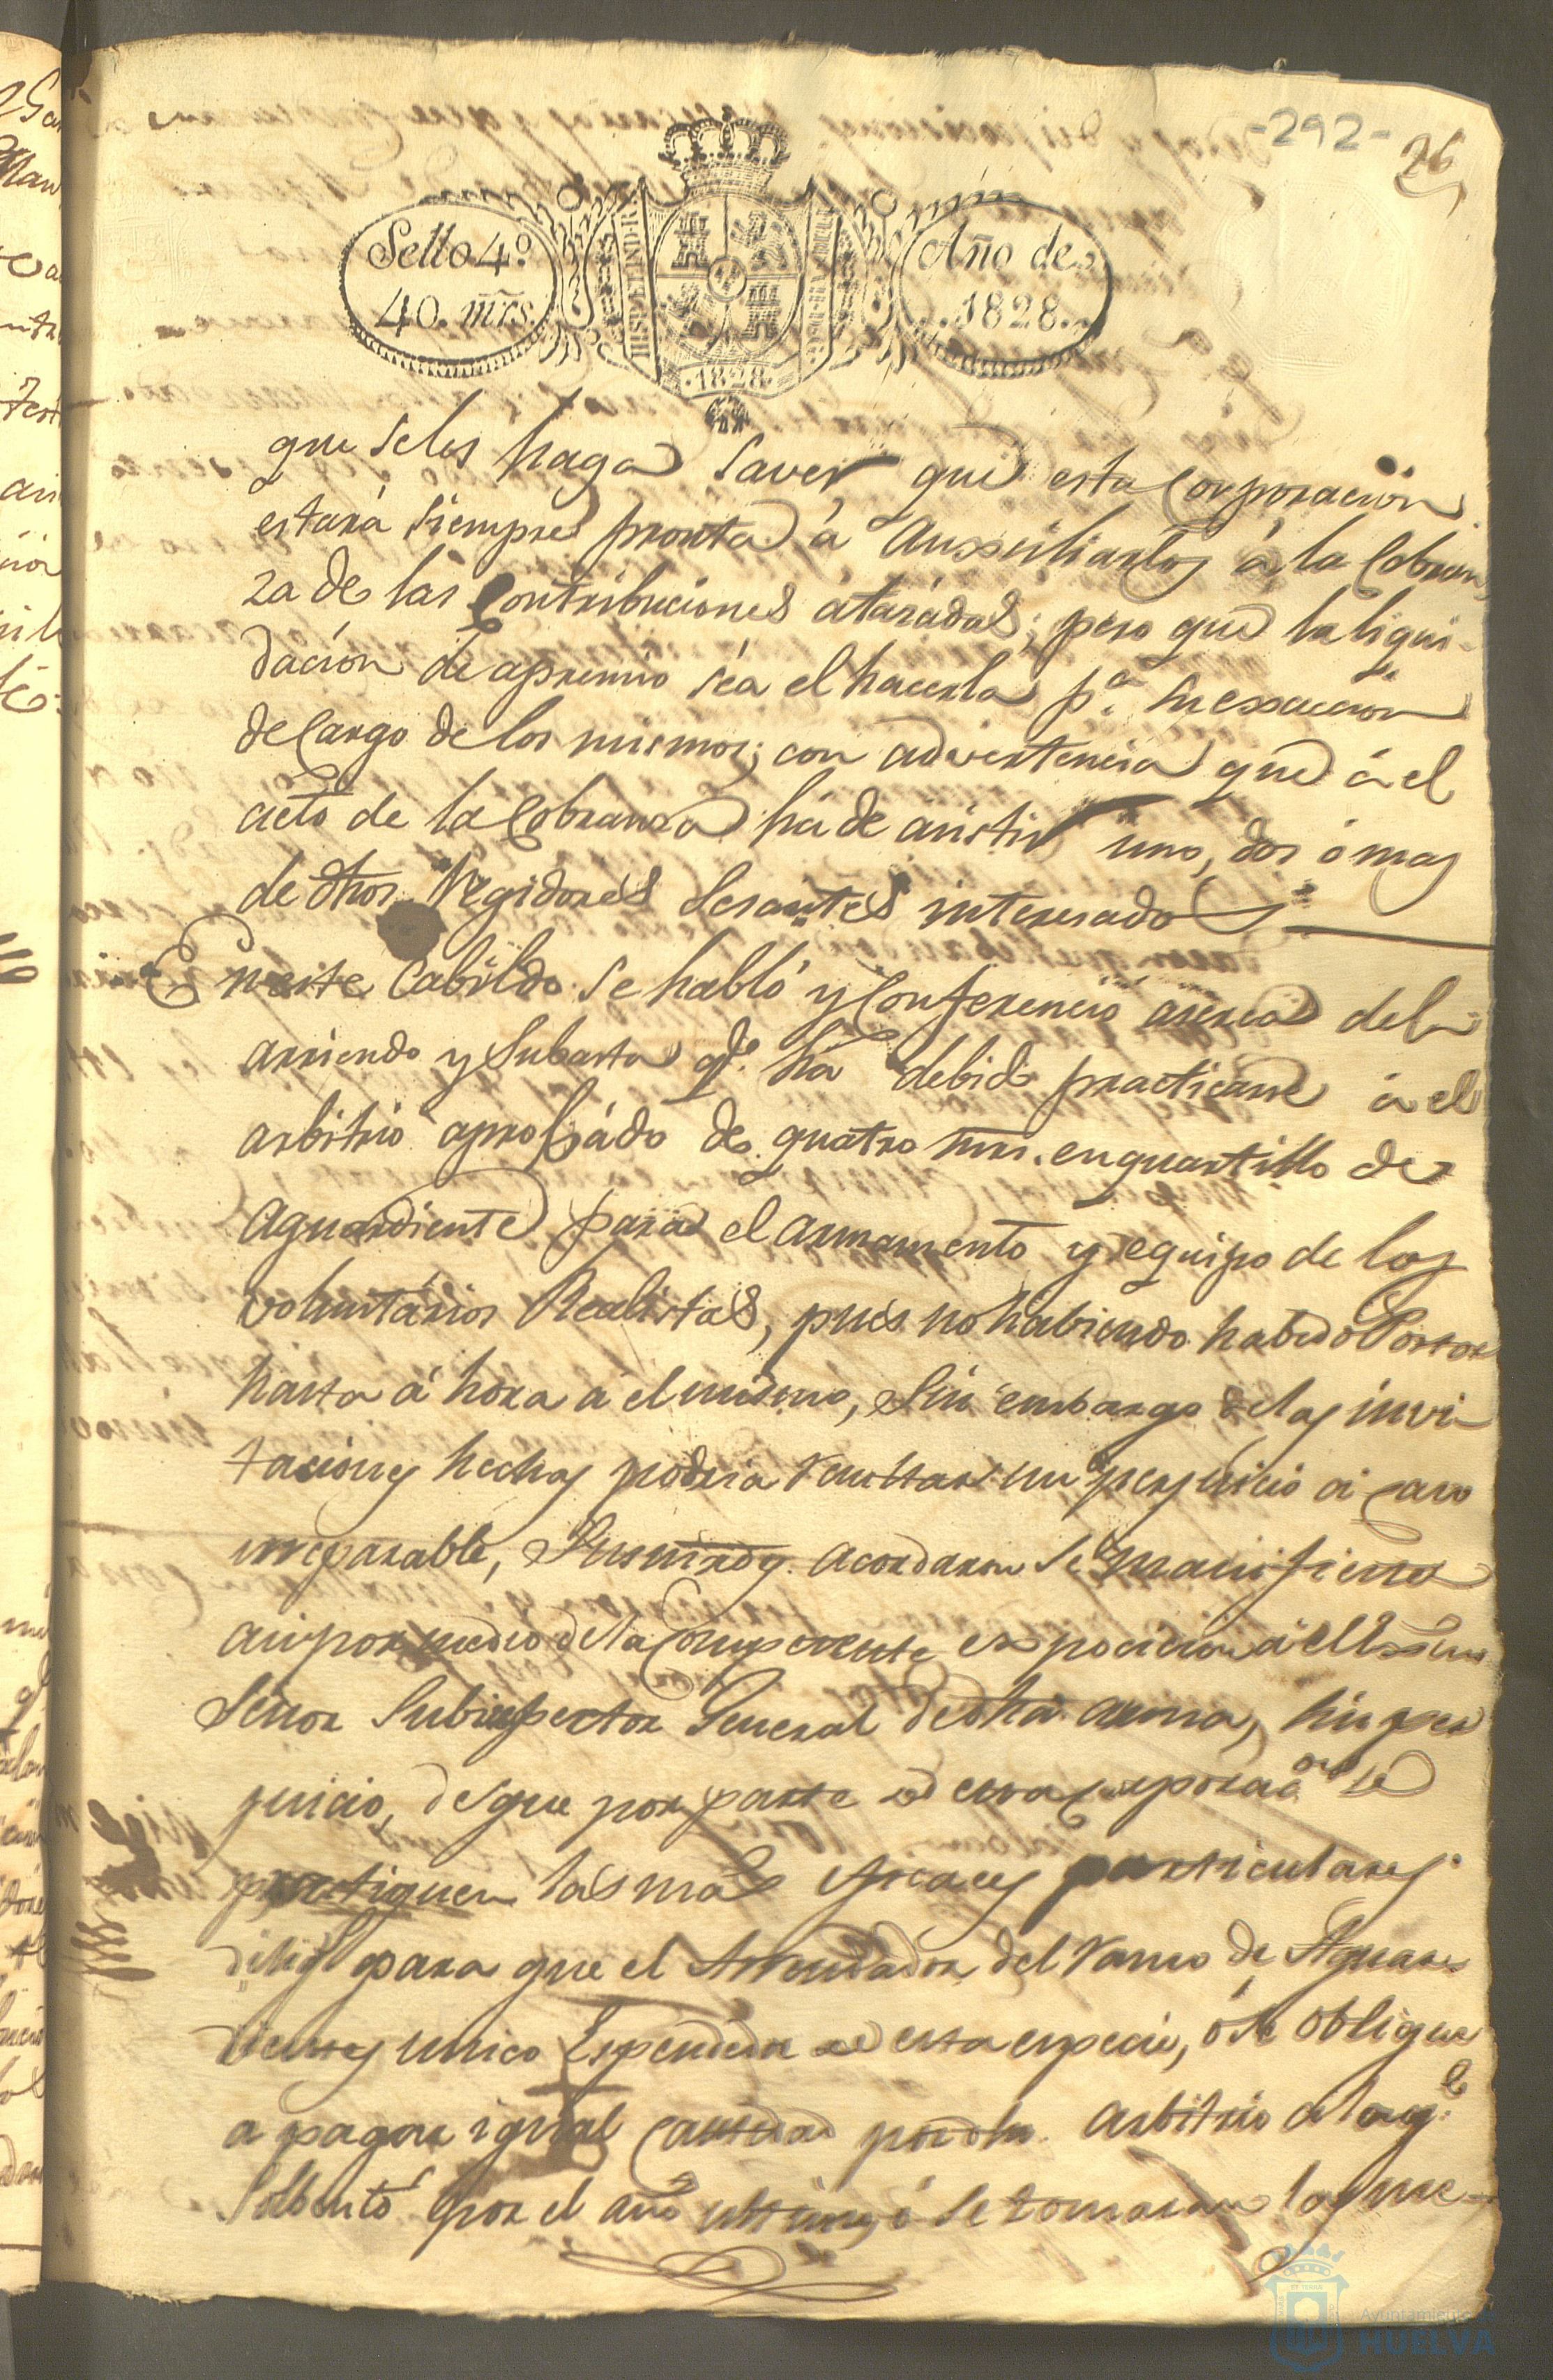 -292-
26
Sello 4.º
40. mrs.
Año de
1828.
HISP. ET IND. R.
·1828·
que seles haga saver que esta Corporacion
estará siempre pronta á Aussiliarlos á la Cobran
za de las Contribuciones atrasadas; pero que la liqui-
dacion de apremio sea el hacerla p.ª su exsaccion
de Cargo de los mismos; con advertencia que á el
acto de la Cobranza há de asistir uno, dos ó mas
de dhos. Regidores interesados
En este Cabildo se habló y Conferenció aserca del
arriendo y Subasta q.e ha debido practicarse á el
arbitrio aprobádo de quatro mrs. en quartillo de
Aguardiente para el armamento y equipo de los
voluntarios Realistas, pues no habiendo habido Postor
hasta á hora á el mismo, sin embargo de las invi-
taciones hechas podria resultar un perjuicio á caso
irreparable, Sus mrds. acordaron se manifieste
asi por medio de la Competente exposicion á el Exsmo
Señor Subinspector General de dha. arma, sin per
juicio, de que por parte de esta Corporac.on se
practiquen las mas eficaces particulares
dilig.s para que el Arrendador del ramo de Aguar
dientes unico Espendedor de esta especie, ó se obligue
a pagar igual Cantidad por dho. arbitrio a la q.e
Solbentó por el año ultimo, ó se tomaran las me-
Ayuntamiento de
HUELVA